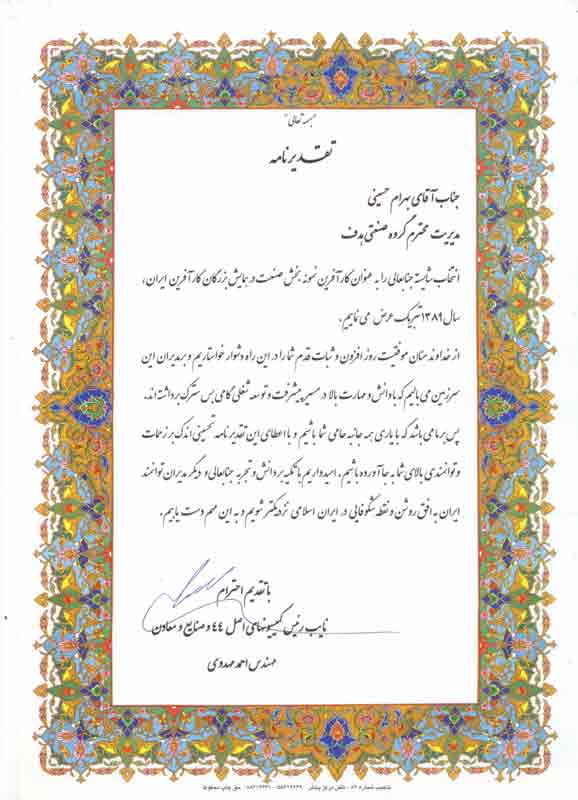 بسمه تعالی
تقدیرنامه
جناب آقای بهرام حسینی
مدیریت محترم گروه صنعتی هدف
انتخاب شایسته جنابعالی را به عنوان کارآفرین نمونه بخش صنعت در همایش بزرگان کارآفرین ایران،
سال ۱۳۸۹ تبریک عرض می نماییم.
از خداوند منان موفقیت روز افزون و ثبات قدم شما را در این راه دشوار خواستاریم و بر مدیران این
سرزمین می بالیم که با دانش و مهارت بالا در مسیر پیشرفت و توسعه شغلی گامی بس سترگ برداشته اند.
پس بر ما می باشد که با یاری همه جانبه حامی شما باشیم و با اعطای این تقدیرنامه تحسینی اندک بر زحمات
و توانمندی بالای شما به جا آورده باشیم. امیدواریم با تکیه بر دانش و تجربه جنابعالی و دیگر مدیران توانمند
ایران به افق روشن و نقطه شکوفایی در ایران اسلامی نزدیکتر شویم و به این مهم دست یابیم.
با تقدیم احترام
نایب رئیس کمیسیونهای اصل ۴۴ و صنایع و معادن
مهندس احمد مهدوی
حق چاپ محفوظ